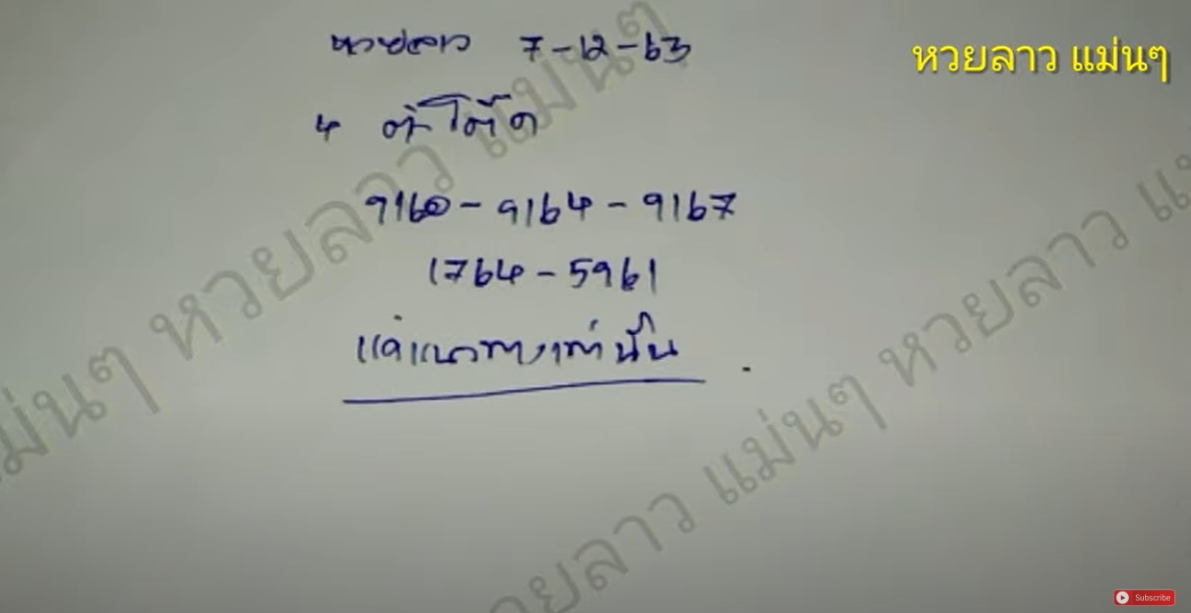 หวยลาว 7-12-63
หวยลาว แม่นๆ
4 ตัวโต๊ด
9160 - 9164 - 9167
1764 - 5961
แค่แนวทางเท่านั้น
แม่นๆ หวยลาว แม่นๆ
แม่นๆ หวยลาว แม่นๆ
หวยลาว แม่นๆ
Subscribe